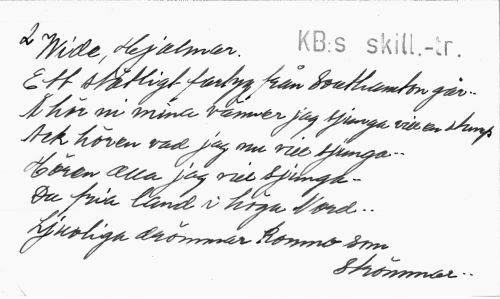 2 Wide, Hjalmar.
KB:s skill.-tr.
Ett ståtligt fartyg från Southamton går--
Å hör ni mina vänner jag sjunga vill en stump
Ack hören vad jag nu vill sjunga--
Hören alla jag vill sjunga-
Du fria land i höga Nord..
Ljuvliga drömmar komma som
strömmar..